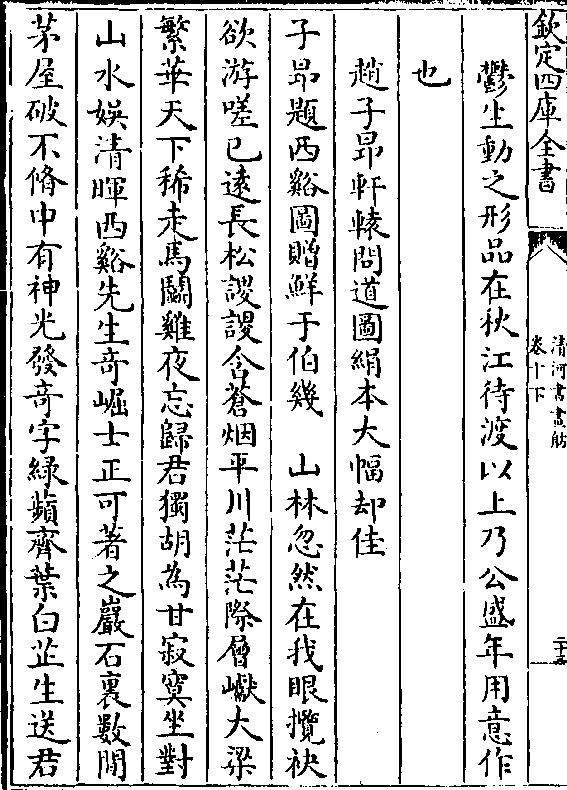 欽定四庫全書
清河書畫舫
卷十下
鬱生動之形品在秋江待渡以上乃公盛年用意作
也
趙子昻軒轅問道圖絹本大幅却佳
子昻題西谿圖贈鮮于伯幾　山林忽然在我眼攬袂
欲游嗟已遠長松謖謖含蒼烟平川茫茫際層巘大梁
繁華天下稀走馬鬬雞夜忘歸君獨胡為甘寂寞坐對
山水娱清暉西谿先生奇崛士正可著之巖石裏數間
茅屋破不脩中有神光發奇字緑蘋齊葉白芷生送君